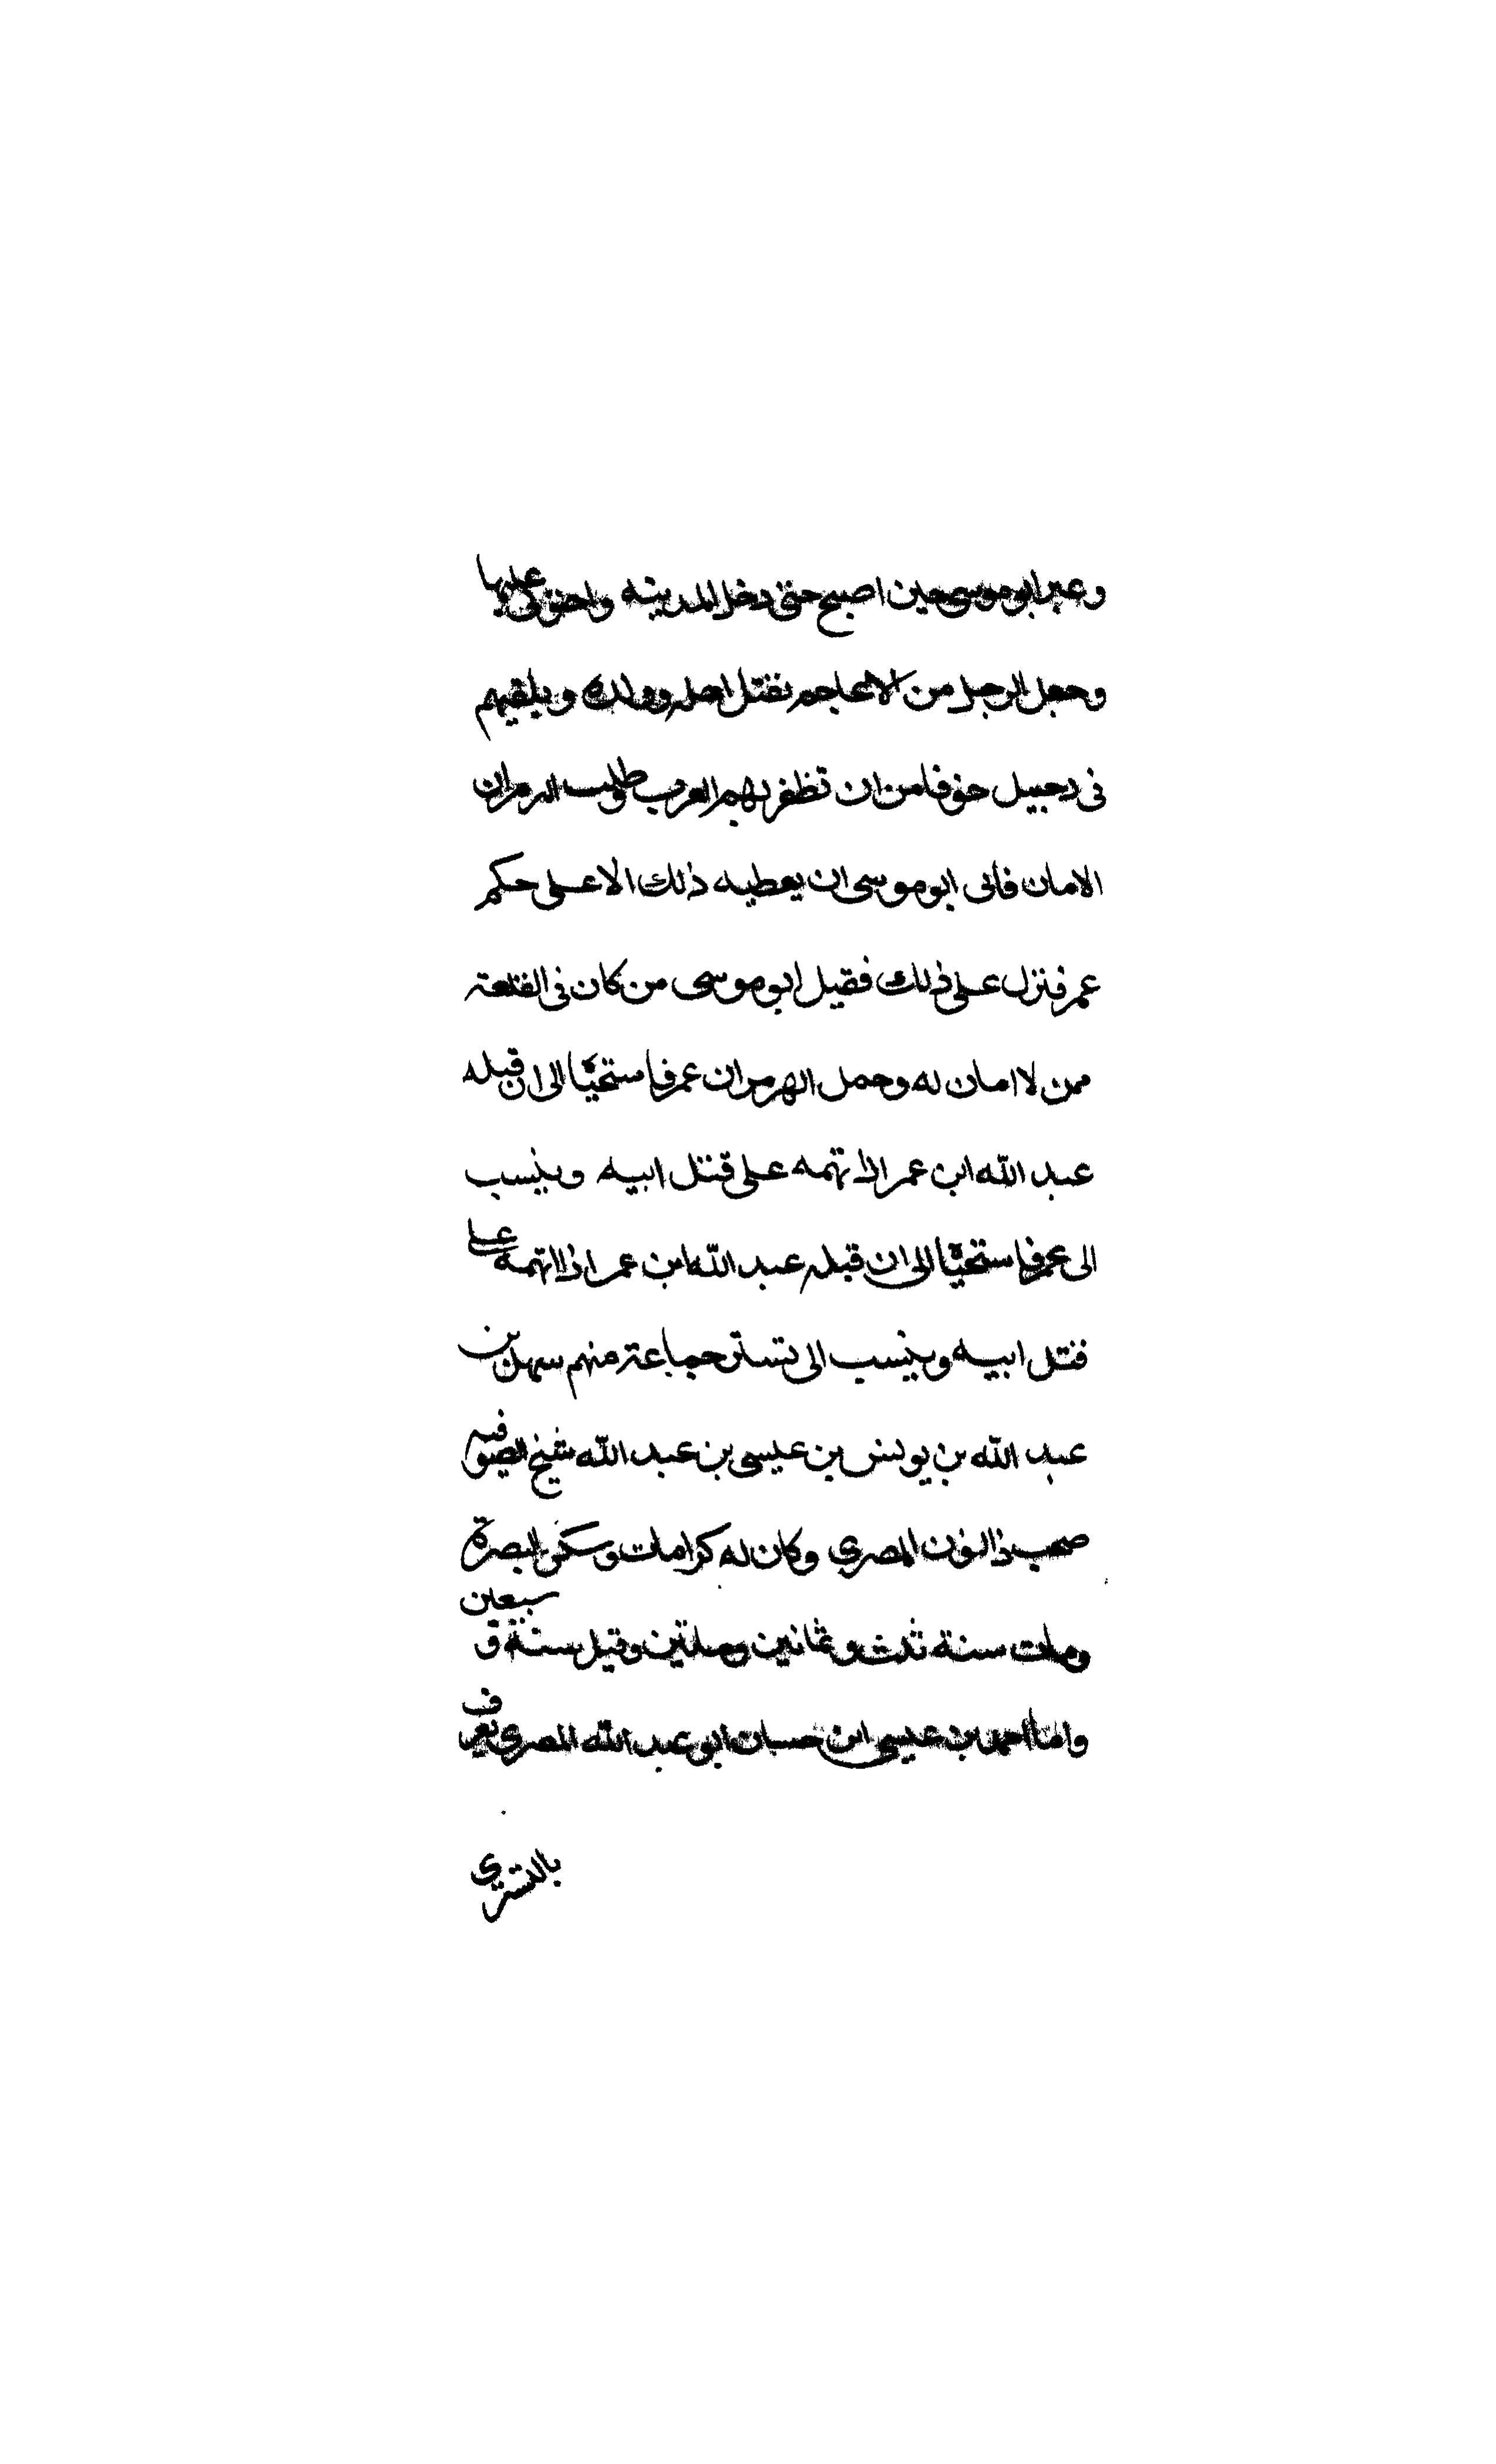 وعبر ابو موسى حين اصبح حتى دخل المدينه واحتوى عليها
وجعل الرجل من الاعاجم يقتل اهله وولده ويلقيهم
فى دجيل خوفا من ان تظفر بهم العرب وطلب الهرمزان
الامان فابى ابو موسى ان يعطيه ذلك الا على حكم
عمر فنزل على ذلك فقيل ابو موسى من كان فى القلعة
ممن لا امان له وحمل الهرمزان عمر فاستحيا الى ان قبله
عبد الله ابن عمر اذا تهمه على قتل ابيه وينسب
الى عمر فاستحيا الى ان قبله عبد الله ابن عمر اذا اتهمه على
قتل ابيه وينسب الى تستر جماعة منهم سهل بن
عبد الله بن يونس بن عيسى بن عبد الله شيخ الصوفيه
صحب ذا النون المصري وكان له كرامات وسكن البصرة
ومات سنة ثلث وثمانين وماتين وقيل سنة سبعين
واما احمد بن عيسى ابن حسان ابو عبد الله المصري يعرف
بالتسترى